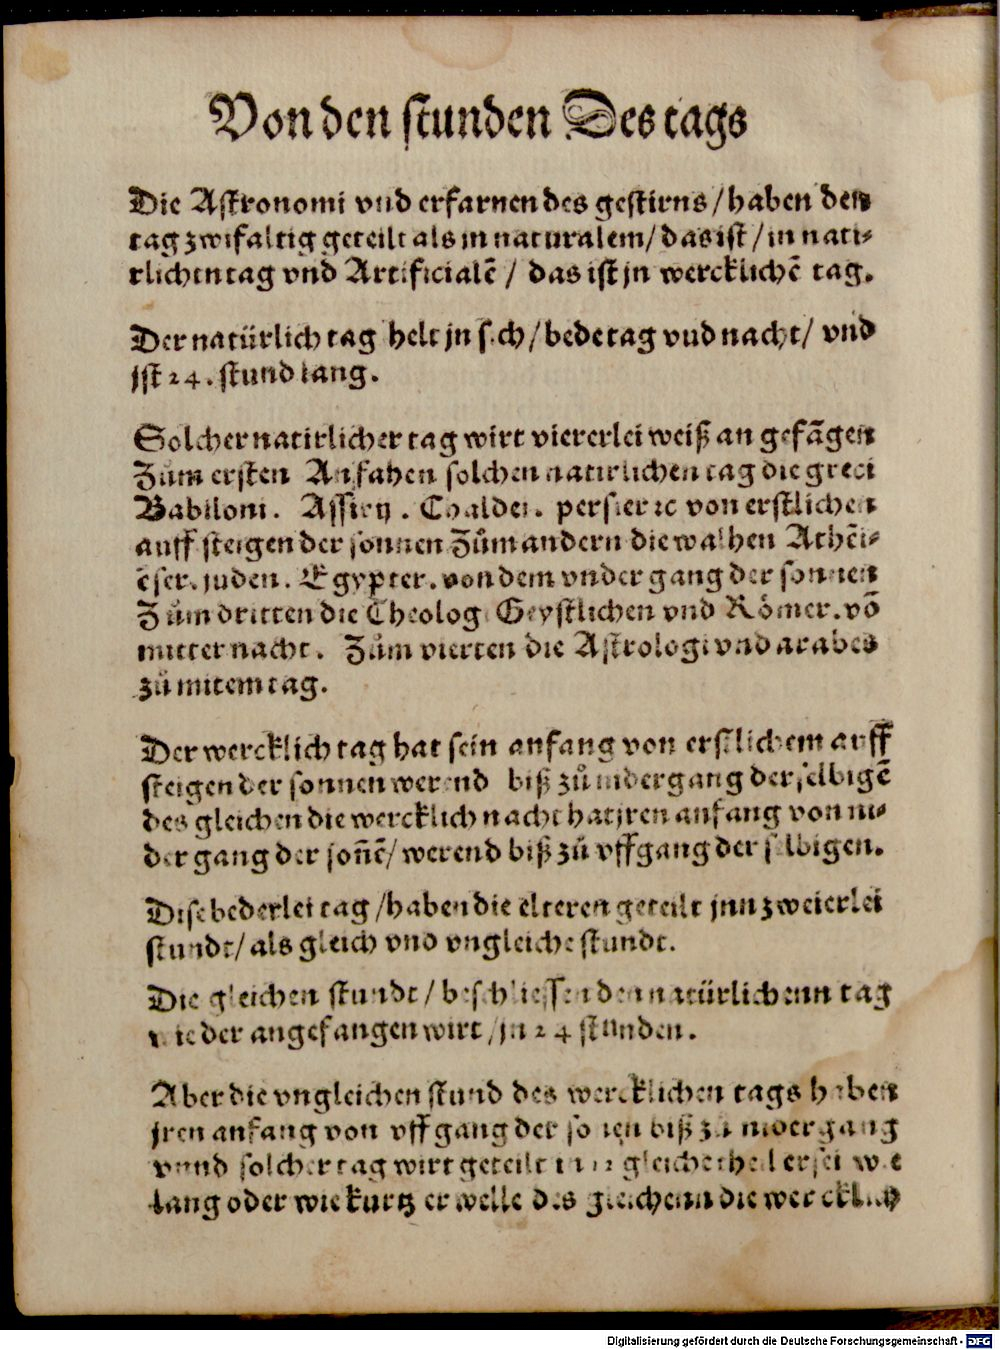 Von den stunden Des tags
Die Astronomi vnd erfarnen des gestirns / haben den
tag zwifaltig geteilt als in naturalem / das ist / in nati⸗
rlichen tag vnd Artificialē / das ist jn wercklichē tag.
Der natürlich tag helt jn sich / bede tag vnd nacht / vnd
jst 24. stund lang.
Solcher natirlicher tag wirt viererlei weiß an gefāgen
Zům ersten Anfahen solchen natirlichen tag die greci
Babiloni. Assirij. Chaldei. persier ꝛc von erstlichen
auff steigen der sonnen Zům andern die walhen Athēi⸗
ēser. juden. Egypter. von dem vnder gang der sonnen
Zům dritten die Theologi Geystlichen vnd Römer. vō
mitter nacht. Zům vierten die Astrologi vnd arabes
zů mitem tag.
Der wercklich tag hat sein anfang von erstlichem auff
steigen der sonnen werend biß zů nidergang der selbigē
des gleichen die wercklich nacht hat jren anfang von ni⸗
der gang der soñē / werend biß zů vffgang der selbigen.
Dise bederlei tag / haben die elteren geteilt jnn zweierlei
stundt / als gleich vnd vngleiche stundt.
Die gleichen stundt / beschliessen den natürlichenn tag
wie der angefangen wirt / jn 24 stunden.
Aber die vngleichen stund des wercklichen tags haben
jren anfang von vffgang der sonen biß zů nidergang
vnnd solcher tag wirt geteilt in 12 gleiche theil er sei wie
lang oder wie kurtz er welle des gleichenn die wercklich
Digitalisierung gefördert durch die Deutsche Forschungsgemeinschaft - DFG